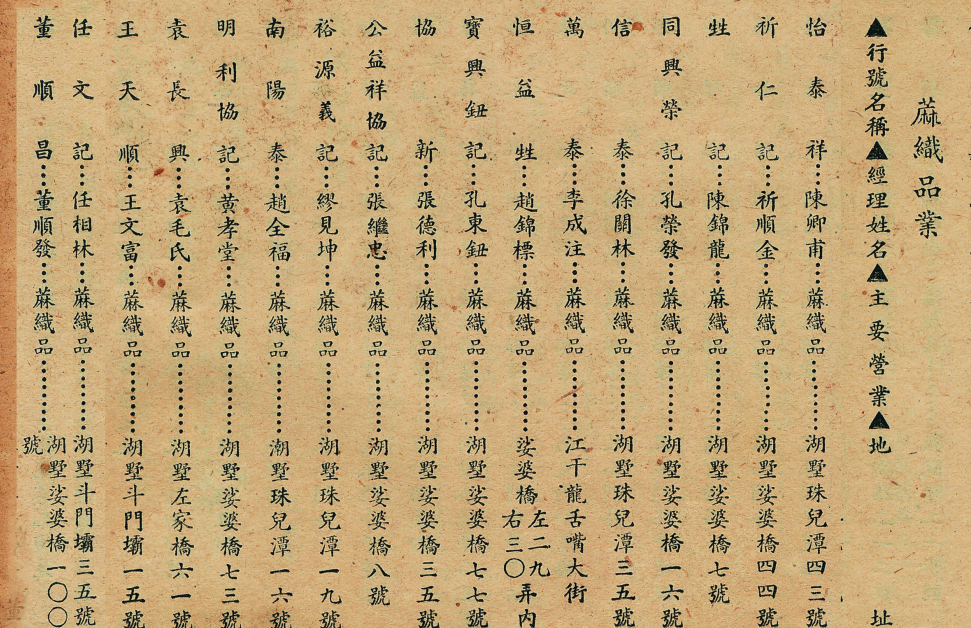 蔴織品業
▲行號名稱▲經理姓名▲主要營業▲地址
怡泰祥…陳卿甫…蔴織品…………湖墅珠兒潭四三號
祈仁記…祈順金…蔴織品…………湖墅娑婆橋四四號
甡記…陳錦龍…蔴織品…………湖墅娑婆橋七號
同興榮記…孔榮發…蔴織品…………湖墅娑婆橋一六號
信泰…徐關林…蔴織品…………湖墅珠兒潭三五號
萬泰…李成注…蔴織品…………江干龍舌嘴大街
恒益甡…趙錦標…蔴織品…………娑婆橋左二九右三〇弄内
寶興鈕記…孔東鈕…蔴織品…………湖墅娑婆橋七七號
協新…張德利…蔴織品…………湖墅娑婆橋三五號
公益祥協記…張繼忠…蔴織品…………湖墅娑婆橋八號
裕源義記…繆見坤…蔴織品…………湖墅珠兒潭一九號
南陽泰…趙全福…蔴織品…………潮墅珠兒潭一六號
明利協記…黃孝堂…蔴織品…………湖墅娑婆橋七三號
袁長興…袁毛氏…蔴織品…………湖墅左家橋六一號
王天順…王文富…蔴織品…………湖墅斗門壩一五號
任文記…任相林…蔴織品…………湖墅斗門壩三五號
董順昌…董順發…蔴織品…………湖墅娑婆橋一〇〇號